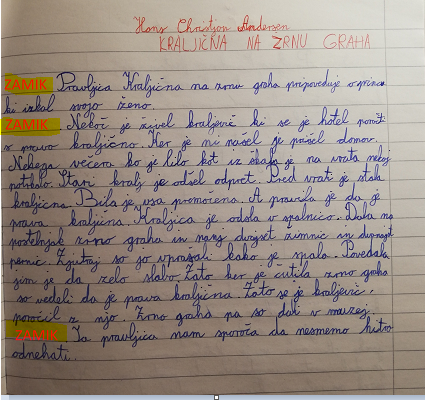 Hans Christian Andersen
KRALJIČNA NA ZRNU GRAHA
ZAMIK Pravljica Kraljična na zrnu graha pripoveduje o princu
ki iskal svojo ženo.
ZAMIK. Nekoč je živel kraljevič ki se je hotel poročit
s pravo kraljično. Ker je ni našel je prišel domov.
Nekega večera ko je lilo kot iz škafa je na vrata nekaj
potrkalo. Stari kralj je odšel odpret. Pred vrati je stala
kraljična. Bila je vsa premočena. A pravila je da je
prava kraljična. Kraljica je odšla v spalnico. Dala na
posteljnjak zrno graha in nanj dvajset žimnic in dvajset
pernic. Zjutraj so jo vprašali kako je spala. Povedala
jim je da zelo slabo. Zato ker je čutila zrno graha
so vedeli da je prava kraljična. Zato se je kraljevič
poročil z njo. Zrno graha pa so dali v muzej.
ZAMIK Ta pravljica nam sporoča da nesmemo hitro
odnehati.